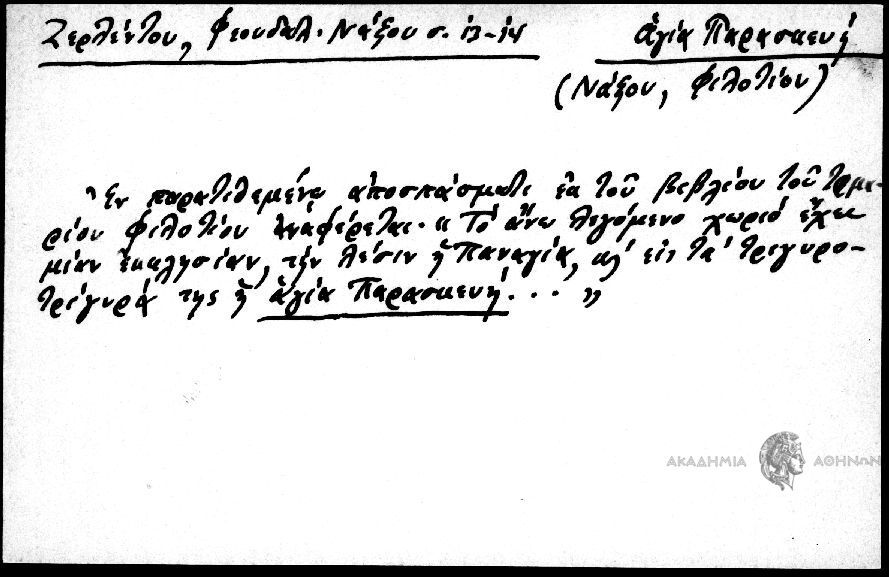 Ζερλέντου, Φεουδαλ. Νάξου σ. 13-14
ἁγία Παρασκευή
(Νάξου, Φιλοτίου)
Ἐν παρατιθεμένῳ ἀποσπάσματι ἐκ τοῦ βιβλίου τοῦ τιμα-
ρίου Φιλοτίου ἀναφέρεται· « Τὸ ἄνω λεγόμενο χωριό ἔχει
μίαν ἐκκλησίαν, τὴν λέσιν ἡ Παναγία, κι' εἰς τὰ τριγυρο-
τρίγυρά της ἡ ἁγία Παρασκευή. . . »
ΑΚΑΔΗΜΙΑ ΑΘΗΝΩΝ